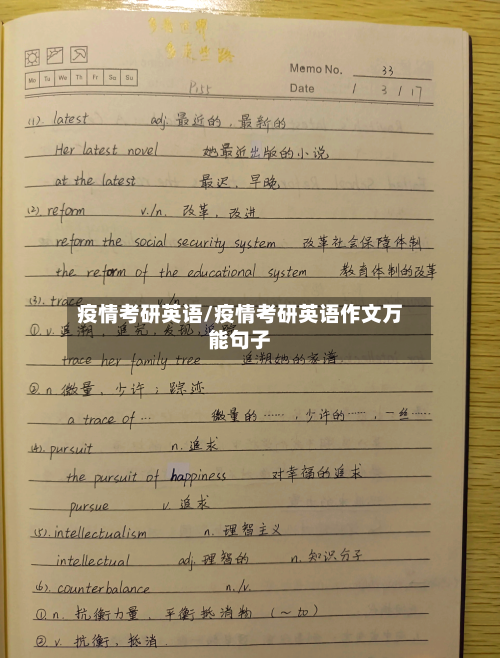 Memo No. 33
Mo Tu We Th Fr Sa Su
Date 1 3 1 17
P155
(1). latest adj. 最近的，最新的
Her latest novel 她最近出版的小说
at the latest 最迟，早晚
(2) reform v./n. 改革，改进
reform the social security system 改革社会保障体制
the reform of the educational system 教育体制的改革
(3). trace v./n.
疫情考研英语/疫情考研英语作文万
能句子
①. v. 追溯，追究，发现，追踪
trace her family tree 追溯她的家谱
②. n 微量，少许；踪迹
a trace of … 微量的……，少许的……，一丝……
(4). pursuit n. 追求
the pursuit of happiness 对幸福的追求
pursue v. 追求
(5). intellectualism n. 理智主义
intellectual adj. 理智的 n. 知识分子
(6). counterbalance n./v.
①. n. 抗衡力量，平衡抵消物 (~ to)
②. v. 抗衡，抵消